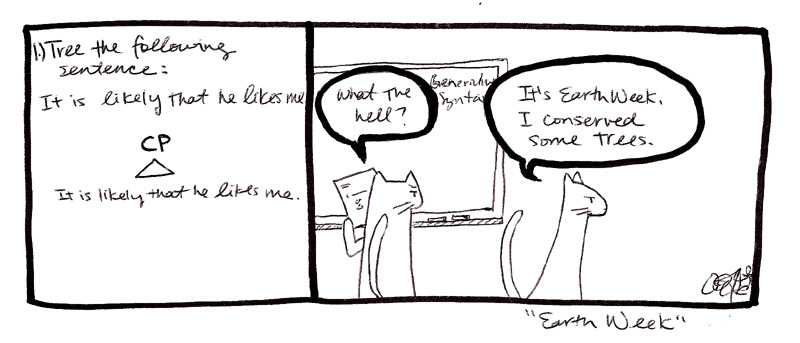 1.) Tree the following
sentence:
It is likely that he likes me
CP
It is likely that he likes me.
What the
hell?
Generative
Syntax
It's Earth Week.
I conserved
some trees.
"Earth Week"